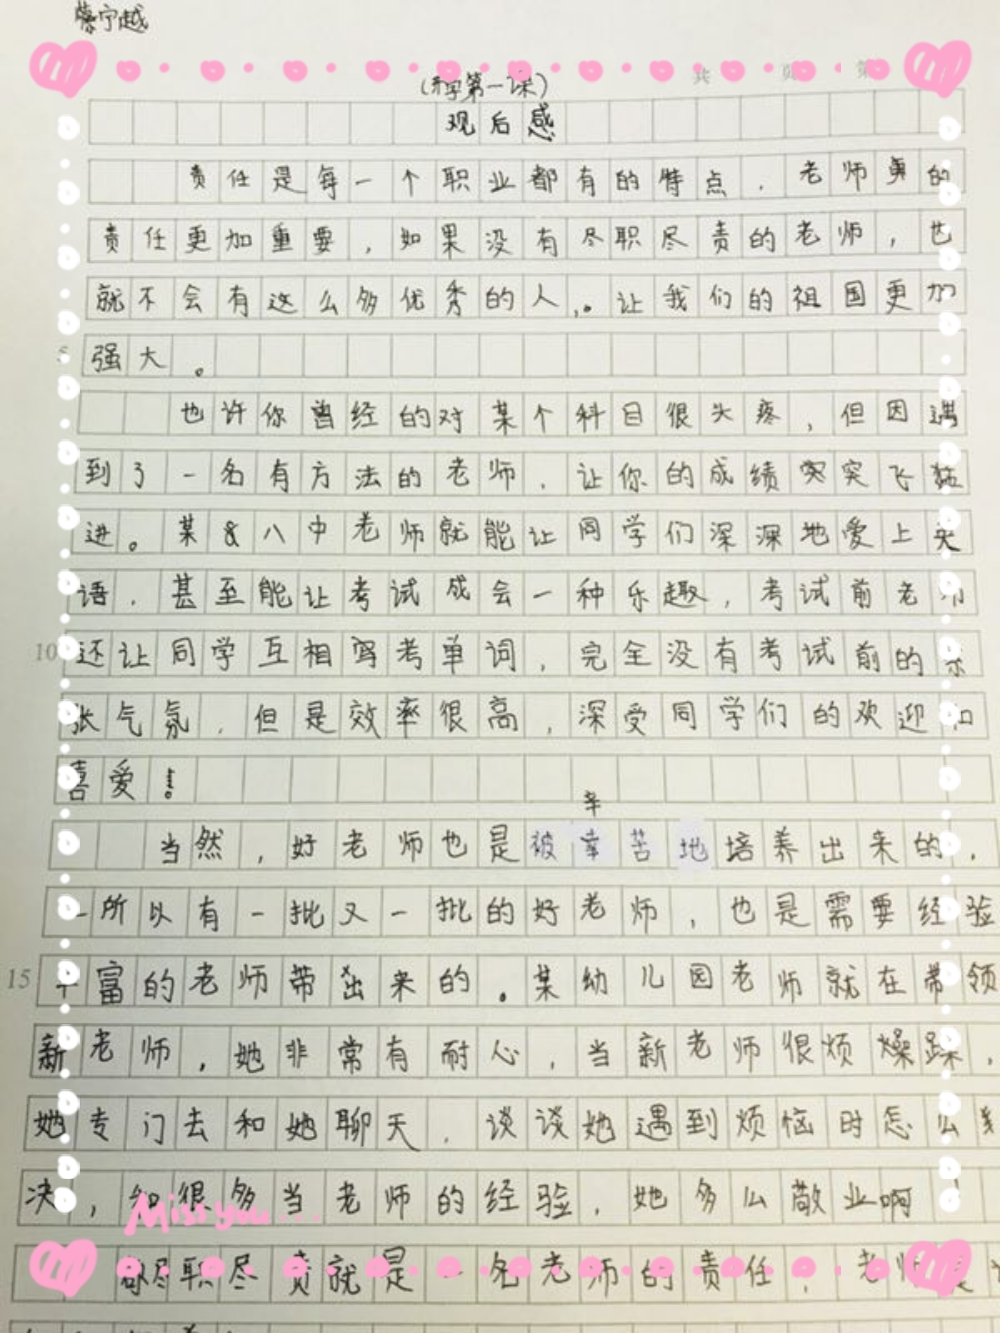 蔡宁越
共 页 第
(开学第一课)
观后感
责任是每一个职业都有的特点，老师身的
责任更加重要，如果没有尽职尽责的老师，也
就不会有这么多优秀的人，。让我们的祖国更加
5
强大。
也许你曾经的对某个科目很头疼，但因遇
到了一名有方法的老师，让你的成绩突突飞猛
进。某&八中老师就能让同学们深深地爱上英
语，甚至能让考试成会一种乐趣，考试前老师
10
还让同学互相写考单词，完全没有考试前的紧
张气氛，但是效率很高，深受同学们的欢迎和
喜爱！
辛
当然，好老师也是被幸苦地培养出来的，
所以有一批又一批的好老师，也是需要经验
15
丰富的老师带出来的。某幼儿园老师就在带领
新老师，她非常有耐心，当新老师很烦燥躁，
她专门去和她聊天，谈谈她遇到烦恼时怎么
决，和很多当老师的经验，她多么敬业啊
Miss you...
尽职尽责就是一名老师的责任，老师是